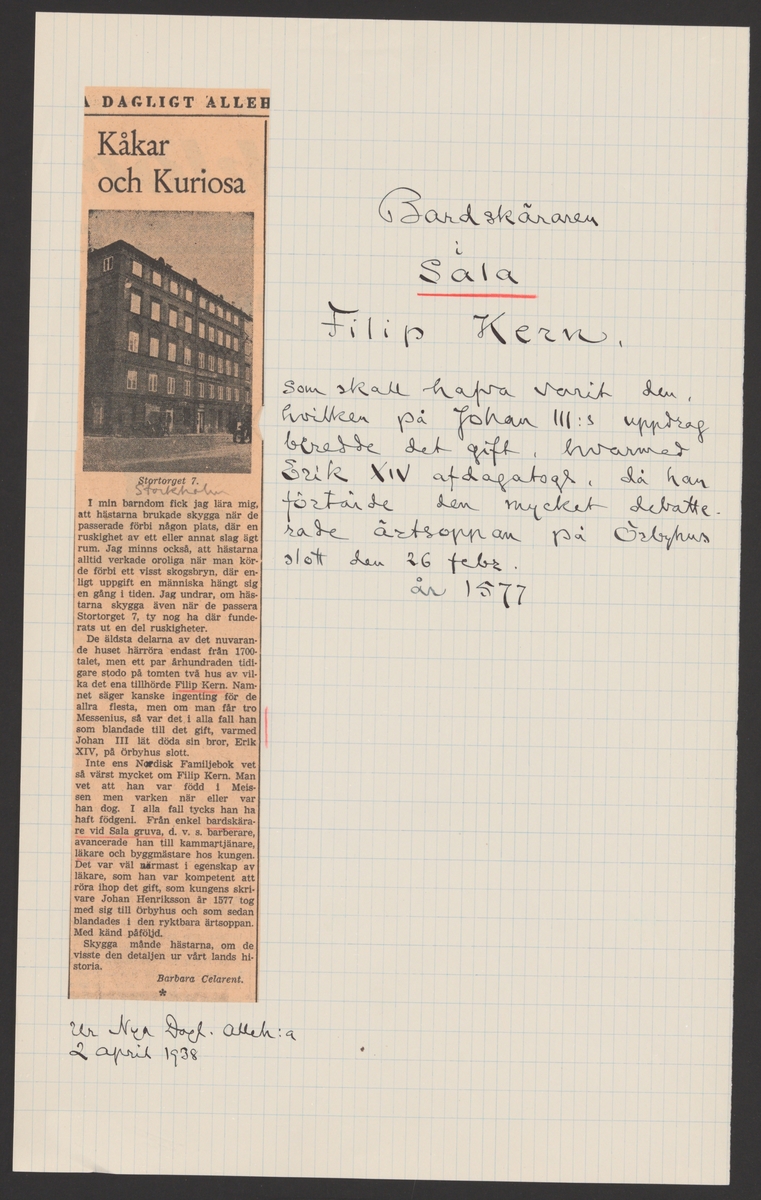 A DAGLIGT ALLEH
Kåkar
och Kuriosa
Stortorget 7.
Stockholm
I min barndom fick jag lära mig,
att hästarna brukade skygga när de
passerade förbi någon plats, där en
ruskighet av ett eller annat slag ägt
rum. Jag minns också, att hästarna
alltid verkade oroliga när man kör-
de förbi ett visst skogsbryn, där en-
ligt uppgift en människa hängt sig
en gång i tiden. Jag undrar, om häs-
tarna skygga även när de passera
Stortorget 7, ty nog ha där funde-
rats ut en del ruskigheter.
De äldsta delarna av det nuvaran-
de huset härröra endast från 1700-
talet, men ett par århundraden tidi-
gare stodo på tomten två hus av vil-
ka det ena tillhörde Filip Kern. Nam-
net säger kanske ingenting för de
allra flesta, men om man får tro
Messenius, så var det i alla fall han
som blandade till det gift, varmed
Johan III lät döda sin bror, Erik
XIV, på Örbyhus slott.
Inte ens Nordisk Familjebok vet
så värst mycket om Filip Kern. Man
vet att han var född i Meis-
sen men varken när eller var
han dog. I alla fall tycks han ha
haft födgeni. Från enkel bardskära-
re vid Sala gruva, d. v. s. barberare,
avancerade han till kammartjänare,
läkare och byggmästare hos kungen.
Det var väl närmast i egenskap av
läkare, som han var kompetent att
röra ihop det gift, som kungens skri-
vare Johan Henriksson år 1577 tog
med sig till Örbyhus och som sedan
blandades i den ryktbara ärtsoppan.
Med känd påföljd.
Skygga månde hästarna, om de
visste den detaljen ur vårt lands hi-
storia.
Barbara Celarent.
*
Ur Nya Dagl. Alleh:a
2 april 1938
Bardskäraren
i
Sala
Filip Kern.
som skall hafva varit den,
hvilken på Johan III:s uppdrag
beredde det gift, hvarmed
Erik XIV afdagatogs, då han
förtärde den mycket debatte-
rade ärtsoppan på Örbyhus
slott den 26 febr.
år 1577